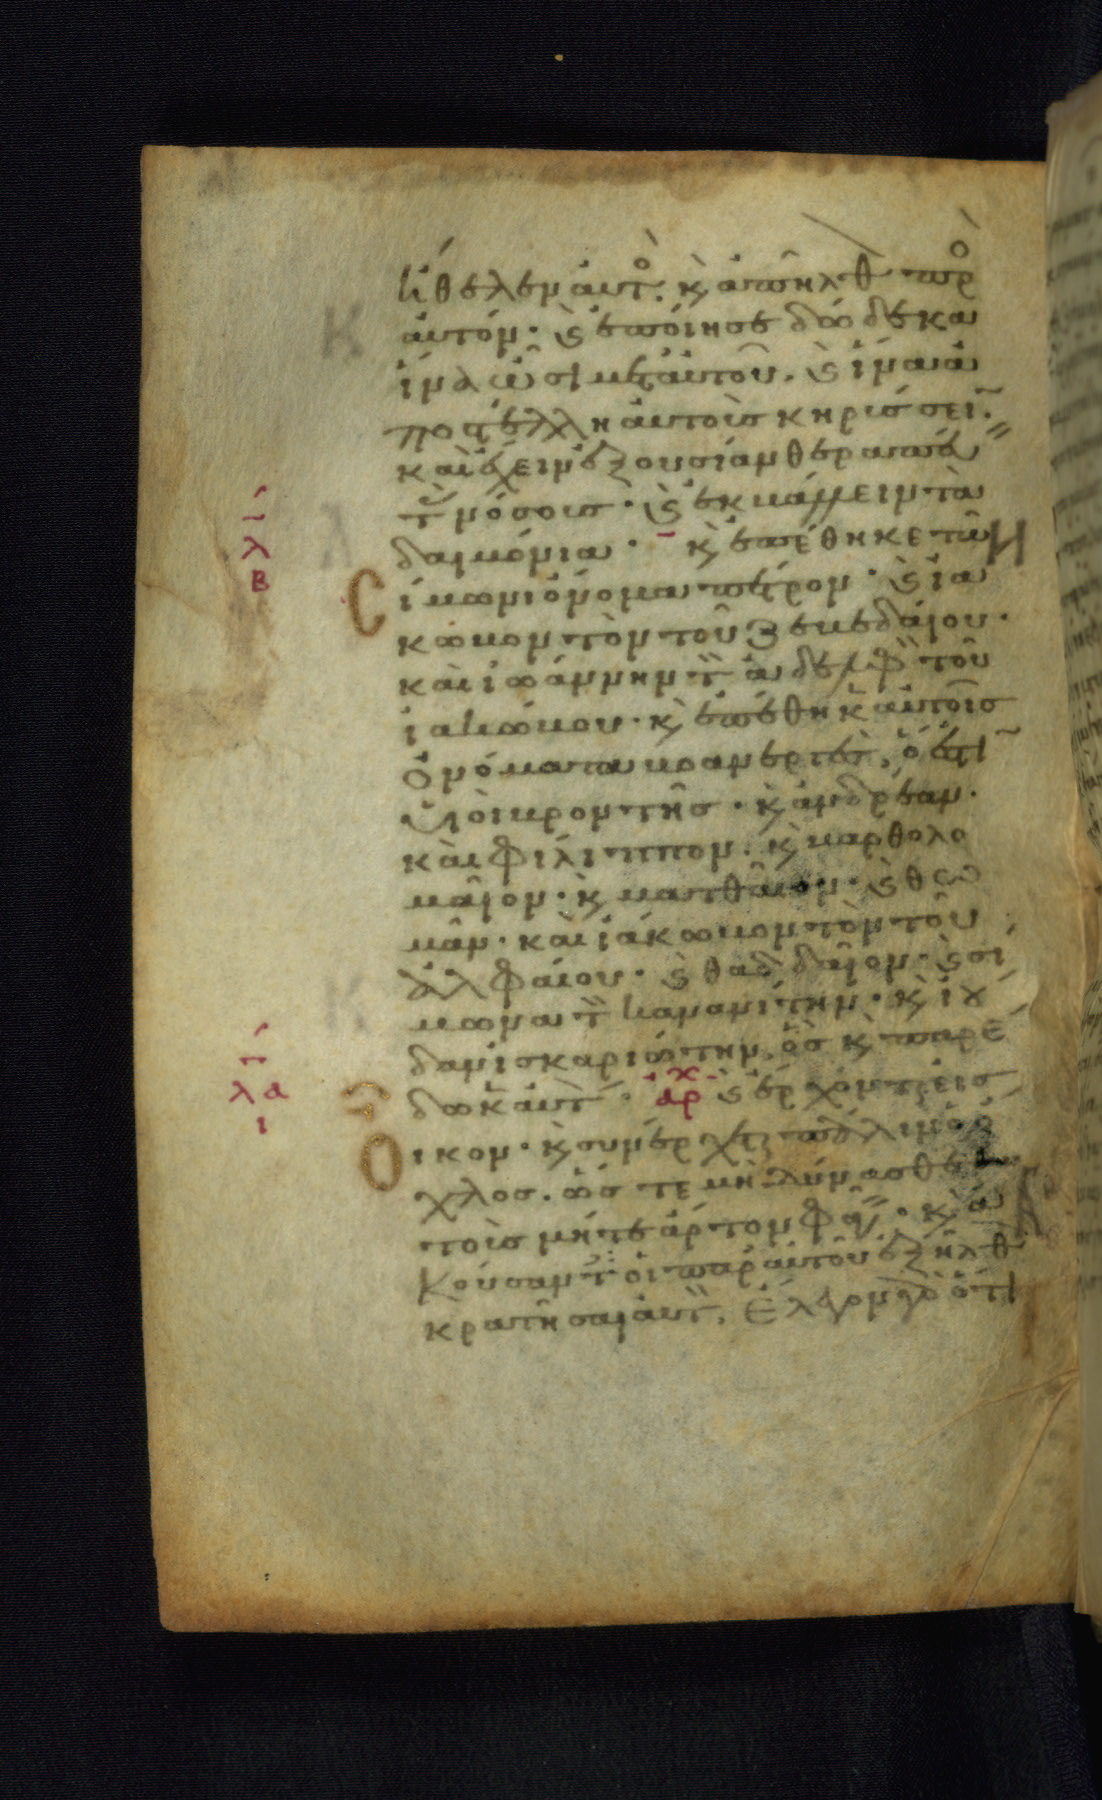 ἤθελεν αὐτὸ(ς). κ(αὶ) ἀπῆλθ(ον) πρὸ(ς)
αὐτόν. κ(αὶ) ἐποίησε δώδεκα
ἵνα ὦσι μετ' αὐτοῦ. κ(αὶ) ἵνα ἀ
ποστέλλη αὐτοὺς κηρύσσει(ν)
καὶ ἔχειν ἐξουσίαν θεραπεύ(ειν)
τ(ὰς) νόσους. κ(αὶ) ἐκβάλλειν τὰ
δαιμόνια. κ(αὶ) ἐπέθηκε τῷ
λβ
Σίμωνι ὄνομα πέτρον. κ(αὶ) ἰά
κωβον τὸν τοῦ ζεβεδαίου.
καὶ ἰωάννην τ(ὸν) ἀδελφ(ὸν) τοῦ
ἰακώβου. κ(αὶ) ἐπέθηκ(εν) αὐτοῖς
ὀνόματα βοανεργὲς, ὅ ἐστι(ν)
υἱοὶ βροντῆς. κ(αὶ) ἀνδρέαν.
καὶ φίλιππον. κ(αὶ) βαρθολο
μαῖον. κ(αὶ) ματθαῖον. κ(αὶ) θω
μᾶν. καὶ ἰάκωβον τὸν τοῦ
ἀλφαίου. κ(αὶ) θαδδαῖον. κ(αὶ) σί
μωνα τ(ὸν) κανανίτην. κ(αὶ) ἰού
δαν ἰσκαριώτην, ὃς κ(αὶ) παρέ
λα
ι
δωκ(εν) αὐτ(όν). ἀρχ κ(αὶ) ἔρχοντ(αι) εἰς
Οἶκον. κ(αὶ) συνέρχετ(αι) πάλιν ὁ ὄ
χλος. ὥστε μὴ δύνασθαι αὐ
τοὺς μήτε ἄρτον φαγ(εῖν). κ(αὶ) ἀ
κούσαντ(ες) οἱ παρ' αὐτοῦ ἐξῆλθ(ον)
κρατῆσαι αὐτ(όν). ἔλεγον γὰρ ὅτι